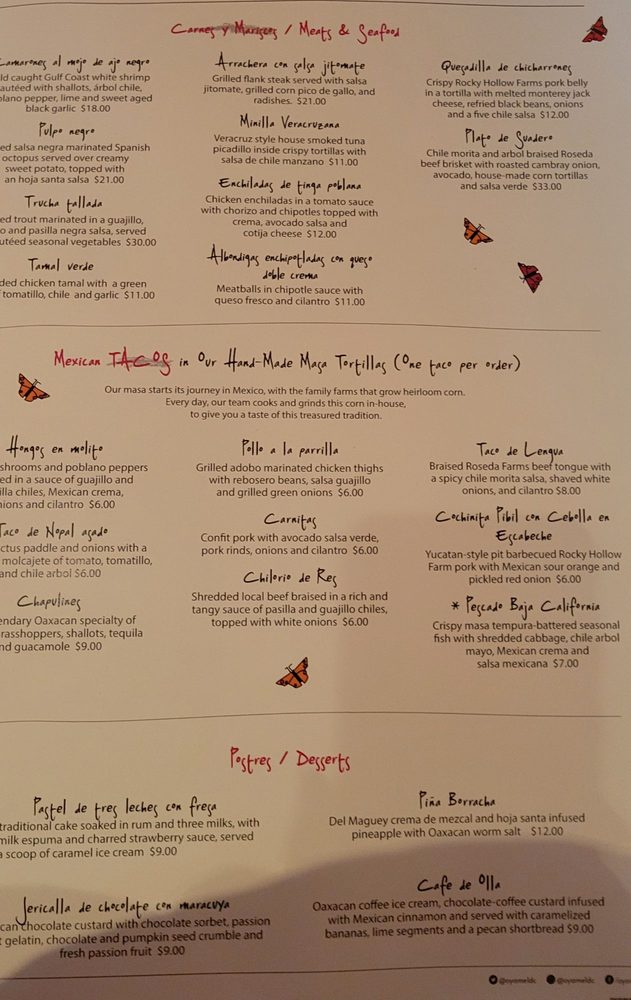 Carnes y Mariscos / Meats & Seafood
Camarones al mojo de ajo negro
ld caught Gulf Coast white shrimp
autéed with shallots, árbol chile,
blano pepper, lime and sweet aged
black garlic $18.00
Pulpo negro
ed salsa negra marinated Spanish
octopus served over creamy
sweet potato, topped with
an hoja santa salsa $21.00
Trucha tallada
ed trout marinated in a guajillo,
o and pasilla negra salsa, served
utéed seasonal vegetables $30.00
Tamal verde
ded chicken tamal with a green
tomatillo, chile and garlic $11.00
Arrachera con salsa jitomate
Grilled flank steak served with salsa
jitomate, grilled corn pico de gallo, and
radishes. $21.00
Minilla Veracruzana
Veracruz style house smoked tuna
picadillo inside crispy tortillas with
salsa de chile manzano $11.00
Enchiladas de tinga poblana
Chicken enchiladas in a tomato sauce
with chorizo and chipotles topped with
crema, avocado salsa and
cotija cheese $12.00
Albondigas enchipotladas con queso
doble crema
Meatballs in chipotle sauce with
queso fresco and cilantro $11.00
Quesadilla de chicharrones
Crispy Rocky Hollow Farms pork belly
in a tortilla with melted monterey jack
cheese, refried black beans, onions
and a five chile salsa $12.00
Plato de Suadero
Chile morita and arbol braised Roseda
beef brisket with roasted cambray onion,
avocado, house-made corn tortillas
and salsa verde $33.00
Mexican TACOS in Our Hand-Made Masa Tortillas (One taco per order)
Our masa starts its journey in Mexico, with the family farms that grow heirloom corn.
Every day, our team cooks and grinds this corn in-house,
to give you a taste of this treasured tradition.
Hongos en molito
shrooms and poblano peppers
ed in a sauce of guajillo and
illa chiles, Mexican crema,
nions and cilantro $6.00
Taco de Nopal asado
ctus paddle and onions with a
molcajete of tomato, tomatillo,
and chile arbol $6.00
Chapulines
endary Oaxacan specialty of
rasshoppers, shallots, tequila
nd guacamole $9.00
Pollo a la parrilla
Grilled adobo marinated chicken thighs
with rebosero beans, salsa guajillo
and grilled green onions $6.00
Carnitas
Confit pork with avocado salsa verde,
pork rinds, onions and cilantro $6.00
Chilorio de Res
Shredded local beef braised in a rich and
tangy sauce of pasilla and guajillo chiles,
topped with white onions $6.00
Taco de Lengua
Braised Roseda Farms beef tongue with
a spicy chile morita salsa, shaved white
onions, and cilantro $8.00
Cochinita Pibil con Cebolla en
Escabeche
Yucatan-style pit barbecued Rocky Hollow
Farm pork with Mexican sour orange and
pickled red onion $6.00
* Pescado Baja California
Crispy masa tempura-battered seasonal
fish with shredded cabbage, chile arbol
mayo, Mexican crema and
salsa mexicana $7.00
Postres / Desserts
Pastel de tres leches con fresa
traditional cake soaked in rum and three milks, with
milk espuma and charred strawberry sauce, served
a scoop of caramel ice cream $9.00
Jericalla de chocolate con maracuya
can chocolate custard with chocolate sorbet, passion
t gelatin, chocolate and pumpkin seed crumble and
fresh passion fruit $9.00
Piña Borracha
Del Maguey crema de mezcal and hoja santa infused
pineapple with Oaxacan worm salt $12.00
Cafe de Olla
Oaxacan coffee ice cream, chocolate-coffee custard infused
with Mexican cinnamon and served with caramelized
bananas, lime segments and a pecan shortbread $9.00
@oyameldc @oyameldc /oya